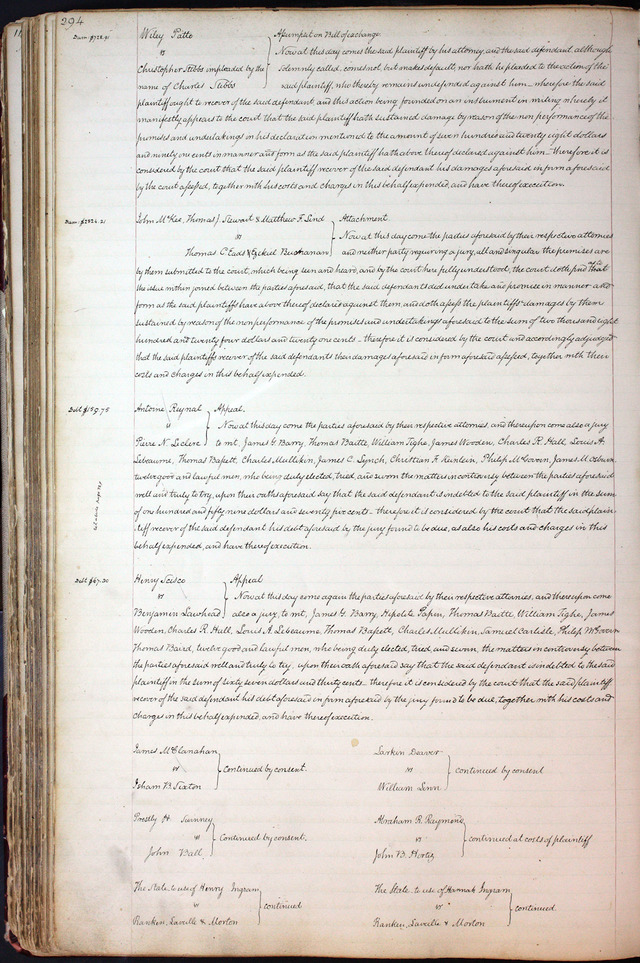 294
Dam. $728.91
Wiley Patte
vs
Christopher Stibbs impleaded by the
name of Charles Stibbs
Assumpsit on Bill of exchange.
Now at this day comes the said plaintiff by his attorney, and the said defendant, although
solemnly called, comes not, but makes default, nor hath he pleaded to the action of the
said plaintiff, who thereby remains undefended against him — wherefore the said
plaintiff ought to recover of the said defendant, and this action being founded on an instrument in writing whereby it
manifestly appears to the court that the said plaintiff hath sustained damage by reason of the non performance of the
promises and undertakings in his declaration mentioned to the amount of seven hundred and twenty eight dollars
and ninety one cents in manner and form as the said plaintiff hath above thereof declared against him — therefore it is
considered by the court that the said plaintiff recover of the said defendant his damages aforesaid in form aforesaid
by the court assessed, together with his costs and charges in this behalf expended, and have thereof execution.
Dam. $2824.21
John McKee, Thomas J. Stewart & Matthew F. Lind
vs
Thomas C. Eads & Ezekiel Buchanan
Attachment.
Now at this day come the parties aforesaid by their respective attornies
and neither party requiring a jury, all and singular the premises are
by them submitted to the court, which being seen and heard, and by the court here fully understood, the court doth find that
the issue within joined between the parties aforesaid, that the said defendants did undertake and promise in manner and
form as the said plaintiffs have above thereof declared against them, and doth assess the plaintiffs damages by them
sustained by reason of the nonperformance of the promises and undertakings aforesaid to the sum of two thousand eight
hundred and twenty four dollars and twenty one cents — therefore it is considered by the court and accordingly adjudged
that the said plaintiffs recover of the said defendants their damages aforesaid in form aforesaid assessed, together with their
costs and charges in this behalf expended.
Debt $159.75
Antoine Reynal
vs
Pierre N. Leclere
Appeal.
Now at this day come the parties aforesaid by their respective attornies, and thereupon come also a jury
to wit, James G. Barry, Thomas Baitte, William Tighe, James Wooden, Charles R. Hall, Louis A.
Lebeaume, Thomas Bassett, Charles Mullikin, James C. Lynch, Christian F. Runlein, Philip McGovern, James M.
twelve good and lawful men, who being duly elected, tried, and sworn the matters in controversy between the parties aforesaid
well and truly to try, upon their oaths aforesaid say that the said defendant is indebted to the said plaintiff in the sum
of one hundred and fifty nine dollars and seventy five cents — therefore it is considered by the court that the said plain-
tiff recover of the said defendant his debt aforesaid by the jury found to be due, as also his costs and charges in this
behalf expended, and have thereof execution.
Debt $67.30
Henry Scisco
vs
Benjamin Lawhead
Appeal
Now at this day come again the parties aforesaid by their respective attornies, and thereupon come
also a jury, to wit, James G. Barry, Hipolite Papin, Thomas Baitte, William Tighe, James
Wooden, Charles R. Hall, Louis A. Lebeaume, Thomas Bassett, Charles Mullikin, Samuel Carlisle, Philip McGovern
Thomas Baird, twelve good and lawful men, who being duly elected, tried and sworn, the matters in controversy between
the parties aforesaid well and truly to try, upon their oath aforesaid say that the said defendant is indebted to the said
plaintiff in the sum of sixty seven dollars and thirty cents — therefore it is considered by the court that the said plaintiff
recover of the said defendant his debt aforesaid in form aforesaid by the jury found to be due, together with his costs and
charges in this behalf expended, and have thereof execution.
James McClanahan
vs
Isham B. Sexton
continued by consent.
Larkin Deaver
vs
William Linn
continued by consent
Pressly H. Swinney
vs
John Ball
Continued by consent.
Abraham R. Raymond
vs
John B. Hortiz
continued at costs of plaintiff
The State to use of Henry Ingram
vs
Ranken, Laveille & Morton
continued
The State to use of Hannah Ingram
vs
Ranken, Laveille & Morton
continued.